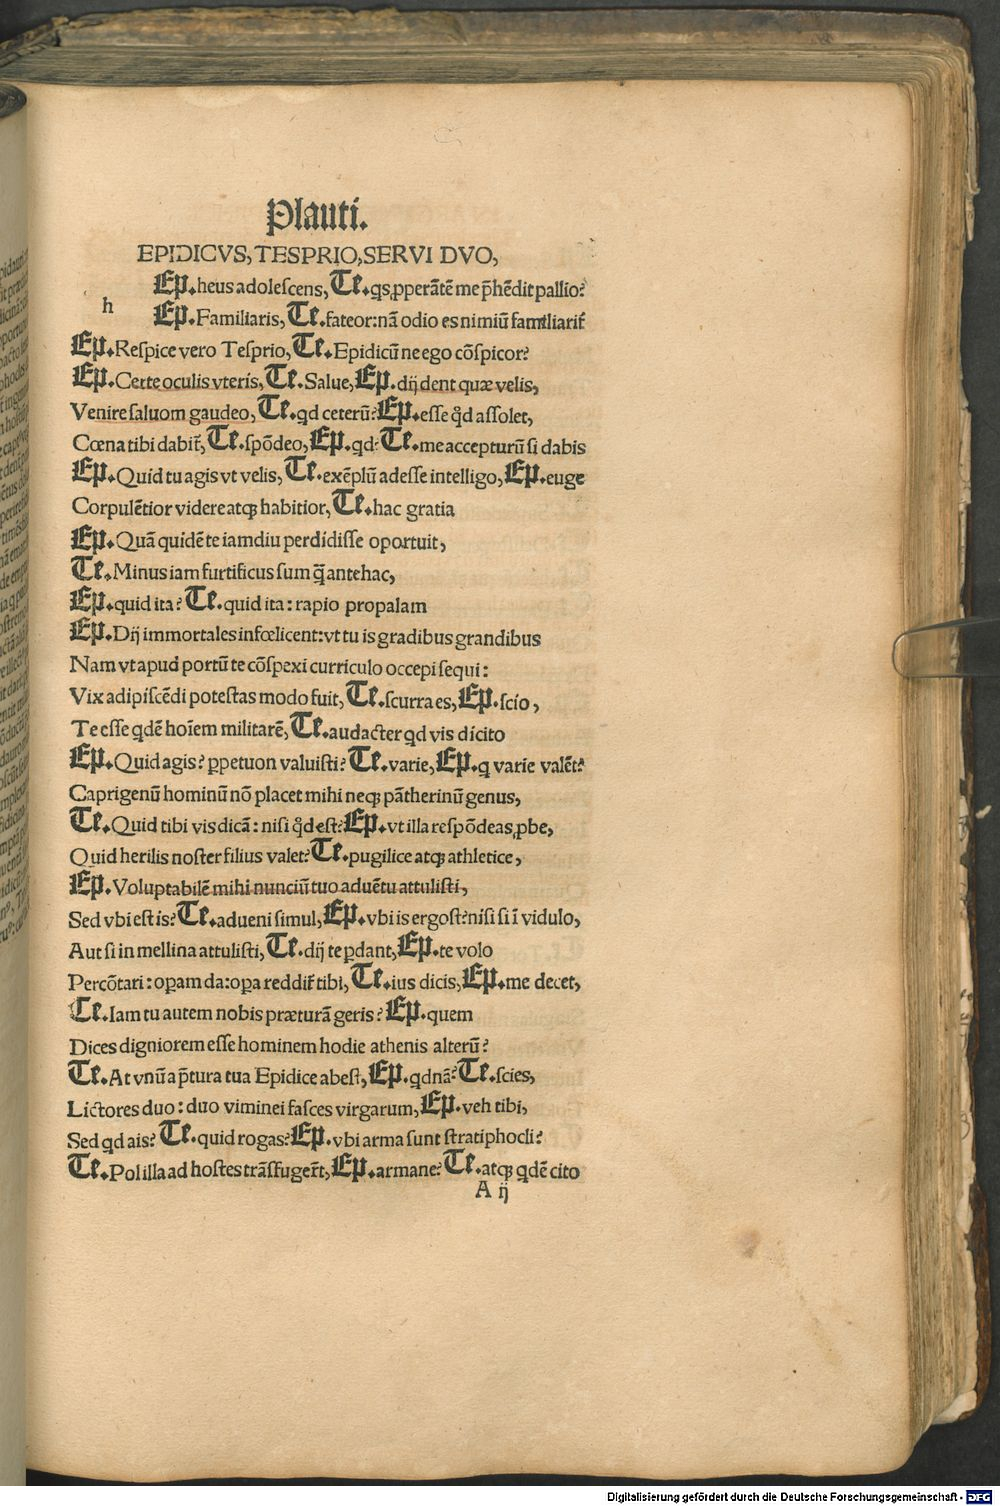 Plauti.
EPIDICVS, TESPRIO, SERVI DVO,
Ep. heus adolescens, Te. qs, pperātē me p̄hēdit pallio?
h
Ep. Familiaris, Te. fateor: nā odio es nimiū familiarit̄
Ep. Respice vero Tesprio, Te. Epidicū ne ego cōspicor?
Ep. Certe oculis vteris, Te. Salue, Ep. dij dent quæ velis,
Venire saluom gaudeo, Te. qd ceterū? Ep. esse q̊d assolet,
Cœna tibi dabit̄, Te. spōdeo, Ep. qd? Te. me accepturū si dabis
Ep. Quid tu agis vt velis, Te. exēplū adesse intelligo, Ep. euge
Corpulētior videre atqꝫ habitior, Te. hac gratia
Ep. Quā quidē te iamdiu perdidisse oportuit,
Te. Minus iam furtificus sum q̄̄ antehac,
Ep. quid ita? Te. quid ita: rapio propalam
Ep. Dij immortales infœlicent: vt tu is gradibus grandibus
Nam vt apud portū te cōspexi curriculo occepi sequi:
Vix adipiscēdi potestas modo fuit, Te. scurra es, Ep. scio,
Te esse qdē hoīem militarē, Te. audacter qd vis dicito
Ep. Quid agis? ꝑpetuon valuisti? Te. varie, Ep. q varie valēt?
Caprigenū hominū nō placet mihi neqꝫ pātherinū genus,
Te. Quid tibi vis dicā: nisi q̊d est? Ep. vt illa respōdeas, ꝓbe,
Quid herilis noster filius valet? Te. pugilice atqꝫ athletice,
Ep. Voluptabilē mihi nunciū tuo aduētu attulisti,
Sed vbi est is? Te. adueni simul, Ep. vbi is ergost? nisi si ī vidulo,
Aut si in mellina attulisti, Te. dij te ꝑdant, Ep. te volo
Percōtari: oꝑam da: oꝑa reddit̄ tibi, Te. ius dicis, Ep. me decet,
Te. Iam tu autem nobis præturā geris? Ep. quem
Dices digniorem esse hominem hodie athenis alterū?
Te. At vnū a p̄tura tua Epidice abest, Ep. qdnā? Te. scies,
Lictores duo: duo viminei fasces virgarum, Ep. veh tibi,
Sed qd ais? Te. quid rogas? Ep. vbi arma sunt stratiphocli?
Te. Pol illa ad hostes trāsfugerт̄, Ep. armane? Te. atqꝫ qdē cito
A ij
Digitalisierung gefördert durch die Deutsche Forschungsgemeinschaft - DFG